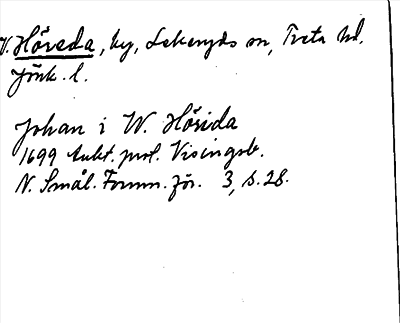 V. Höreda, by, Lekeryds sn, Tveta hd.
Jönk. l.
Johan i W. Hörida
1699 Aukt. prot. Visingsb.
N. Smål. Fornm. för. 3, s. 28.